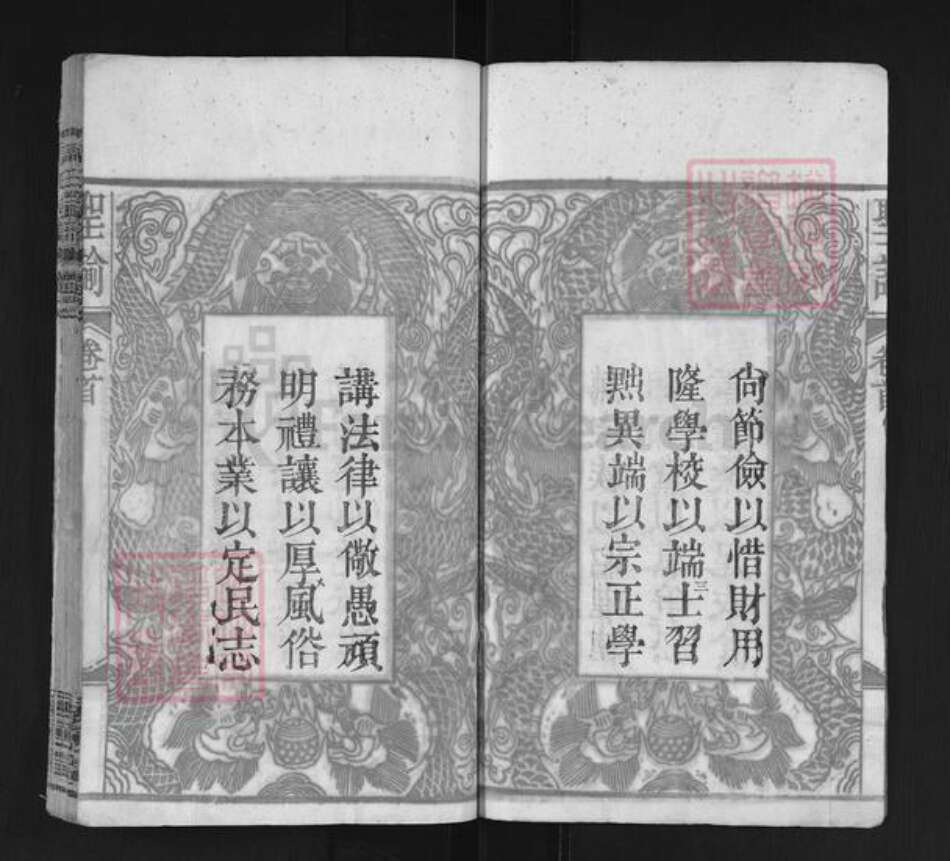 尙節儉以惜財用
隆學校以端士習
黜異端以宗正學
講法律以儆愚頑
明禮讓以厚風俗
務本業以定民志
聖諭
卷首
聖諭
卷首